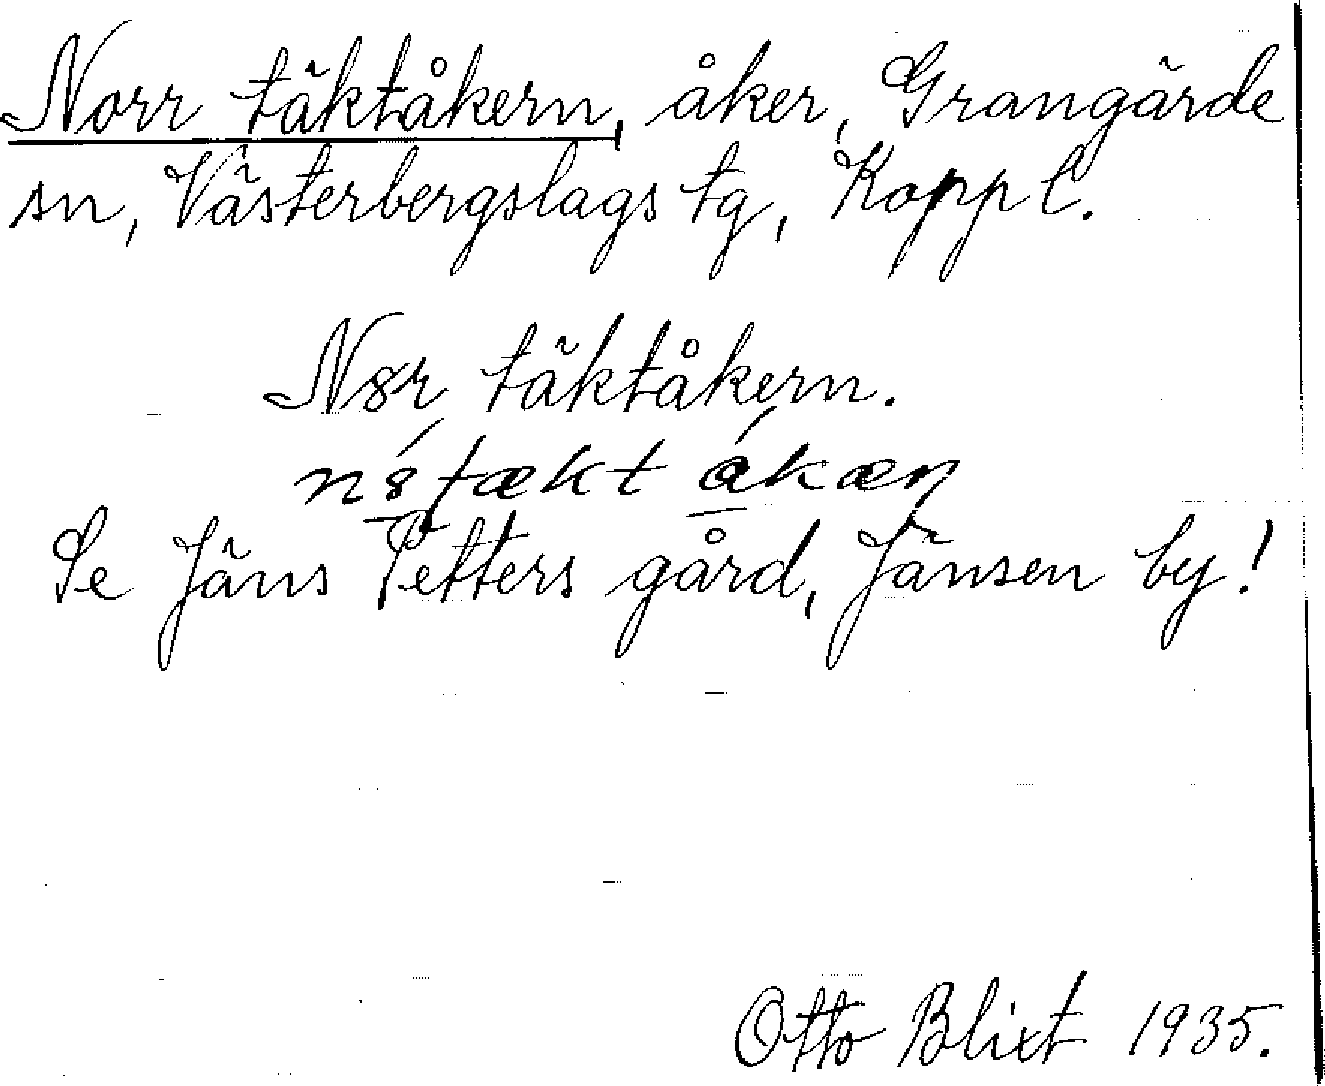 Norr täktåkern, åker, Grangärde
sn, Västerbergslags tg, Kopp l.
N8r täktåkern.
Se Jäns Petters gård, Jänsen by!
Otto Blixt 1935.